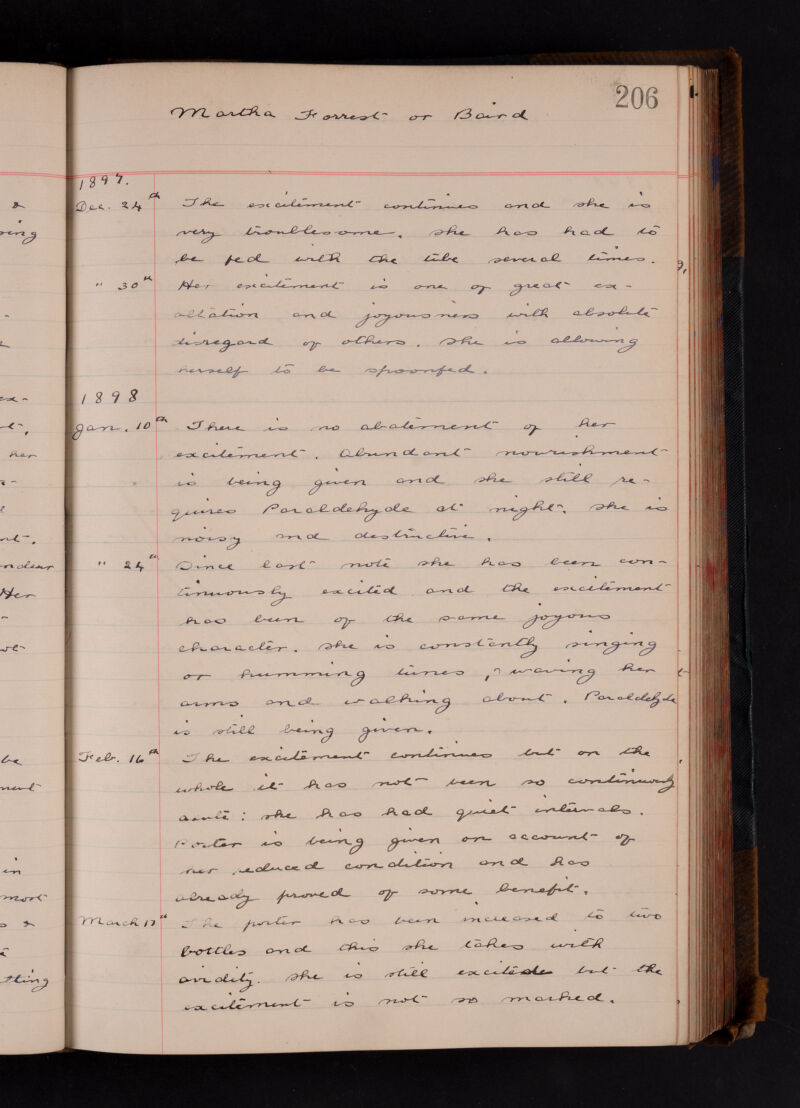 206
Martha Forrest or Baird
1897.
Dec. 24th The excitement continues and she is
very troublesome. She has had to
be fed with the tube several times.
" 30th Her excitement is one of great ex-
altation and joyousness with absolute
disregard of others. She is allowing
herself to be spoonfed.
1898
Jan. 10th There is no abatement of her
excitement. Abundant nourishment
is being given and she still re-
quires Paraldehyde at night. She is
noisy and destructive.
" 24th Since last note she has been con-
tinuously excited and the excitement
has been of the same joyous
character. She is constantly singing
or humming tunes, waving her
arms and walking about. Paraldehyde
is still being given.
Feb. 16th The excitement continues but on the
whole it has not been so continuously
acute: she has had quiet intervals.
Porter is being given on account of
her reduced condition and has
already proved of some benefit.
March 17th The porter has been increased to two
bottles and this she takes with
avidity. She is still excited but the
excitement is not so marked.